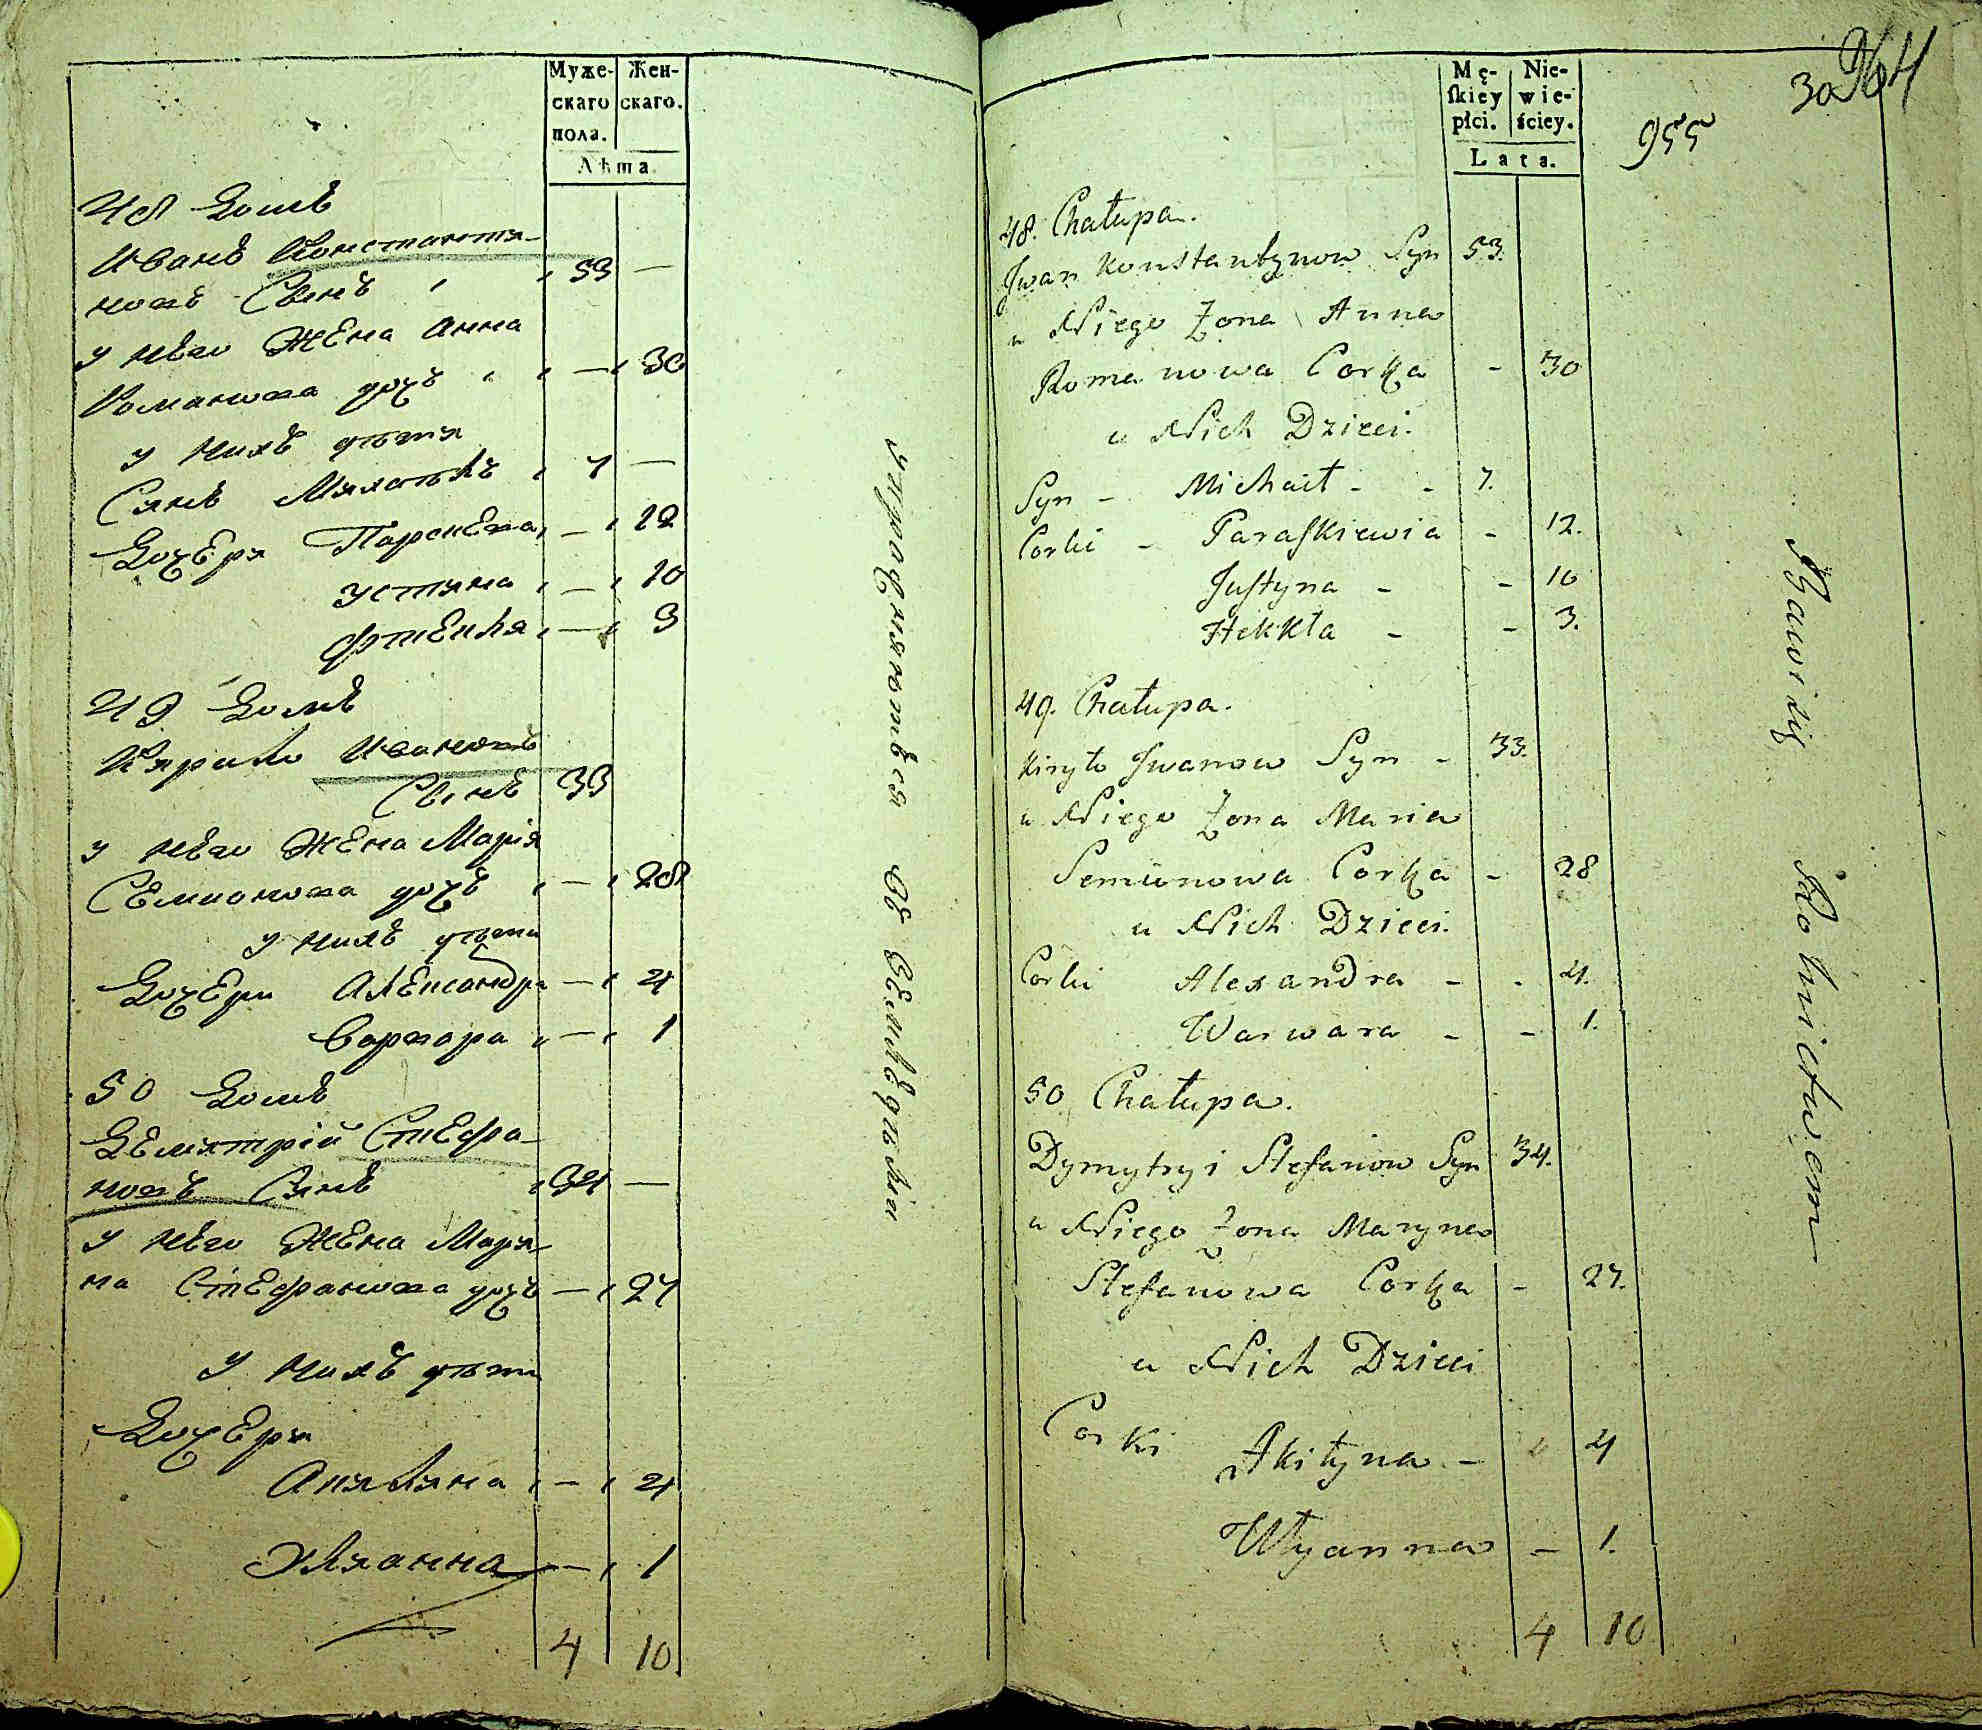 Муже-
скаго
пола.
Жен-
скаго.
Лѣта.
48 Домъ
Иванъ Константи-
новъ Сынъ 53 —
у него Жена Анна
Романова дочь — 30
у нихъ дѣти
Синъ Михайлъ 7 —
Дочери Парскева — 12
Устина — 10
— 3
49 Домъ
Кирило Ивановъ
Сынъ 33
у него Жена Марія
Семионова дочь — 28
у нихъ дѣти
Дочери Александра — 4
Варвара — 1
50 Домъ
Демитрій Стефа-
новъ Синъ 34 —
у него Жена Мари-
на Стефанова дочь — 27
у нихъ дѣти
Дочери
Акилина — 4
Улианна — 1
4 10
упражняются въ земледѣліи
Mę-
skiey
płci.
Nie-
wie-
ściey.
Lata.
955
48. Chałupa.
Jwan Konstantynow Syn 53.
u Niego Żona Anna
Romanowa Corka - 30
u Nich Dzieci.
Syn - Michaił - - 7.
Corki - Paraskiewia - 12.
Justyna - - 10
Hekkła - - 3.
49. Chałupa.
Kiryło Jwanow Syn - 33.
u Niego Żona Maria
Semionowa Corka - 28
u Nich Dzieci.
Corki Alexandra - - 4.
Warwara - - 1.
50 Chałupa.
Dymytryi Stefanow Syn 34.
u Niego Żona Maryna
Stefanowa Corka - 27.
u Nich Dzieci
Corki Akilyna - 4
Ulyanna - 1.
4 10
Bawi się Rolnictwem